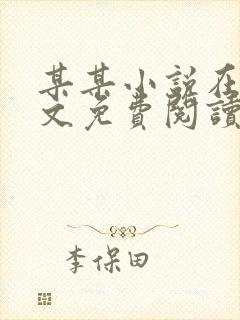 某某小说在
文免費閱讀
李保田